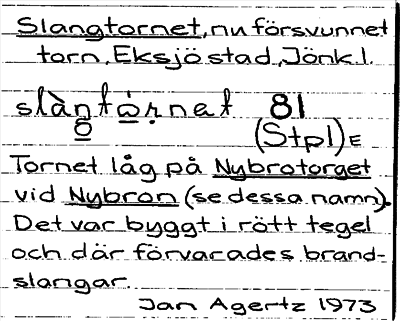 Slangtornet, nu försvunnet
torn, Eksjö stad, Jönk.l.
slàŋtώ̣ṇet 81
(Stpl) E
Tornet låg på Nybrotorget
vid Nybron (se dessa namn).
Det var byggt i rött tegel
och där förvarades brand-
slangar.
Jan Agertz 1973